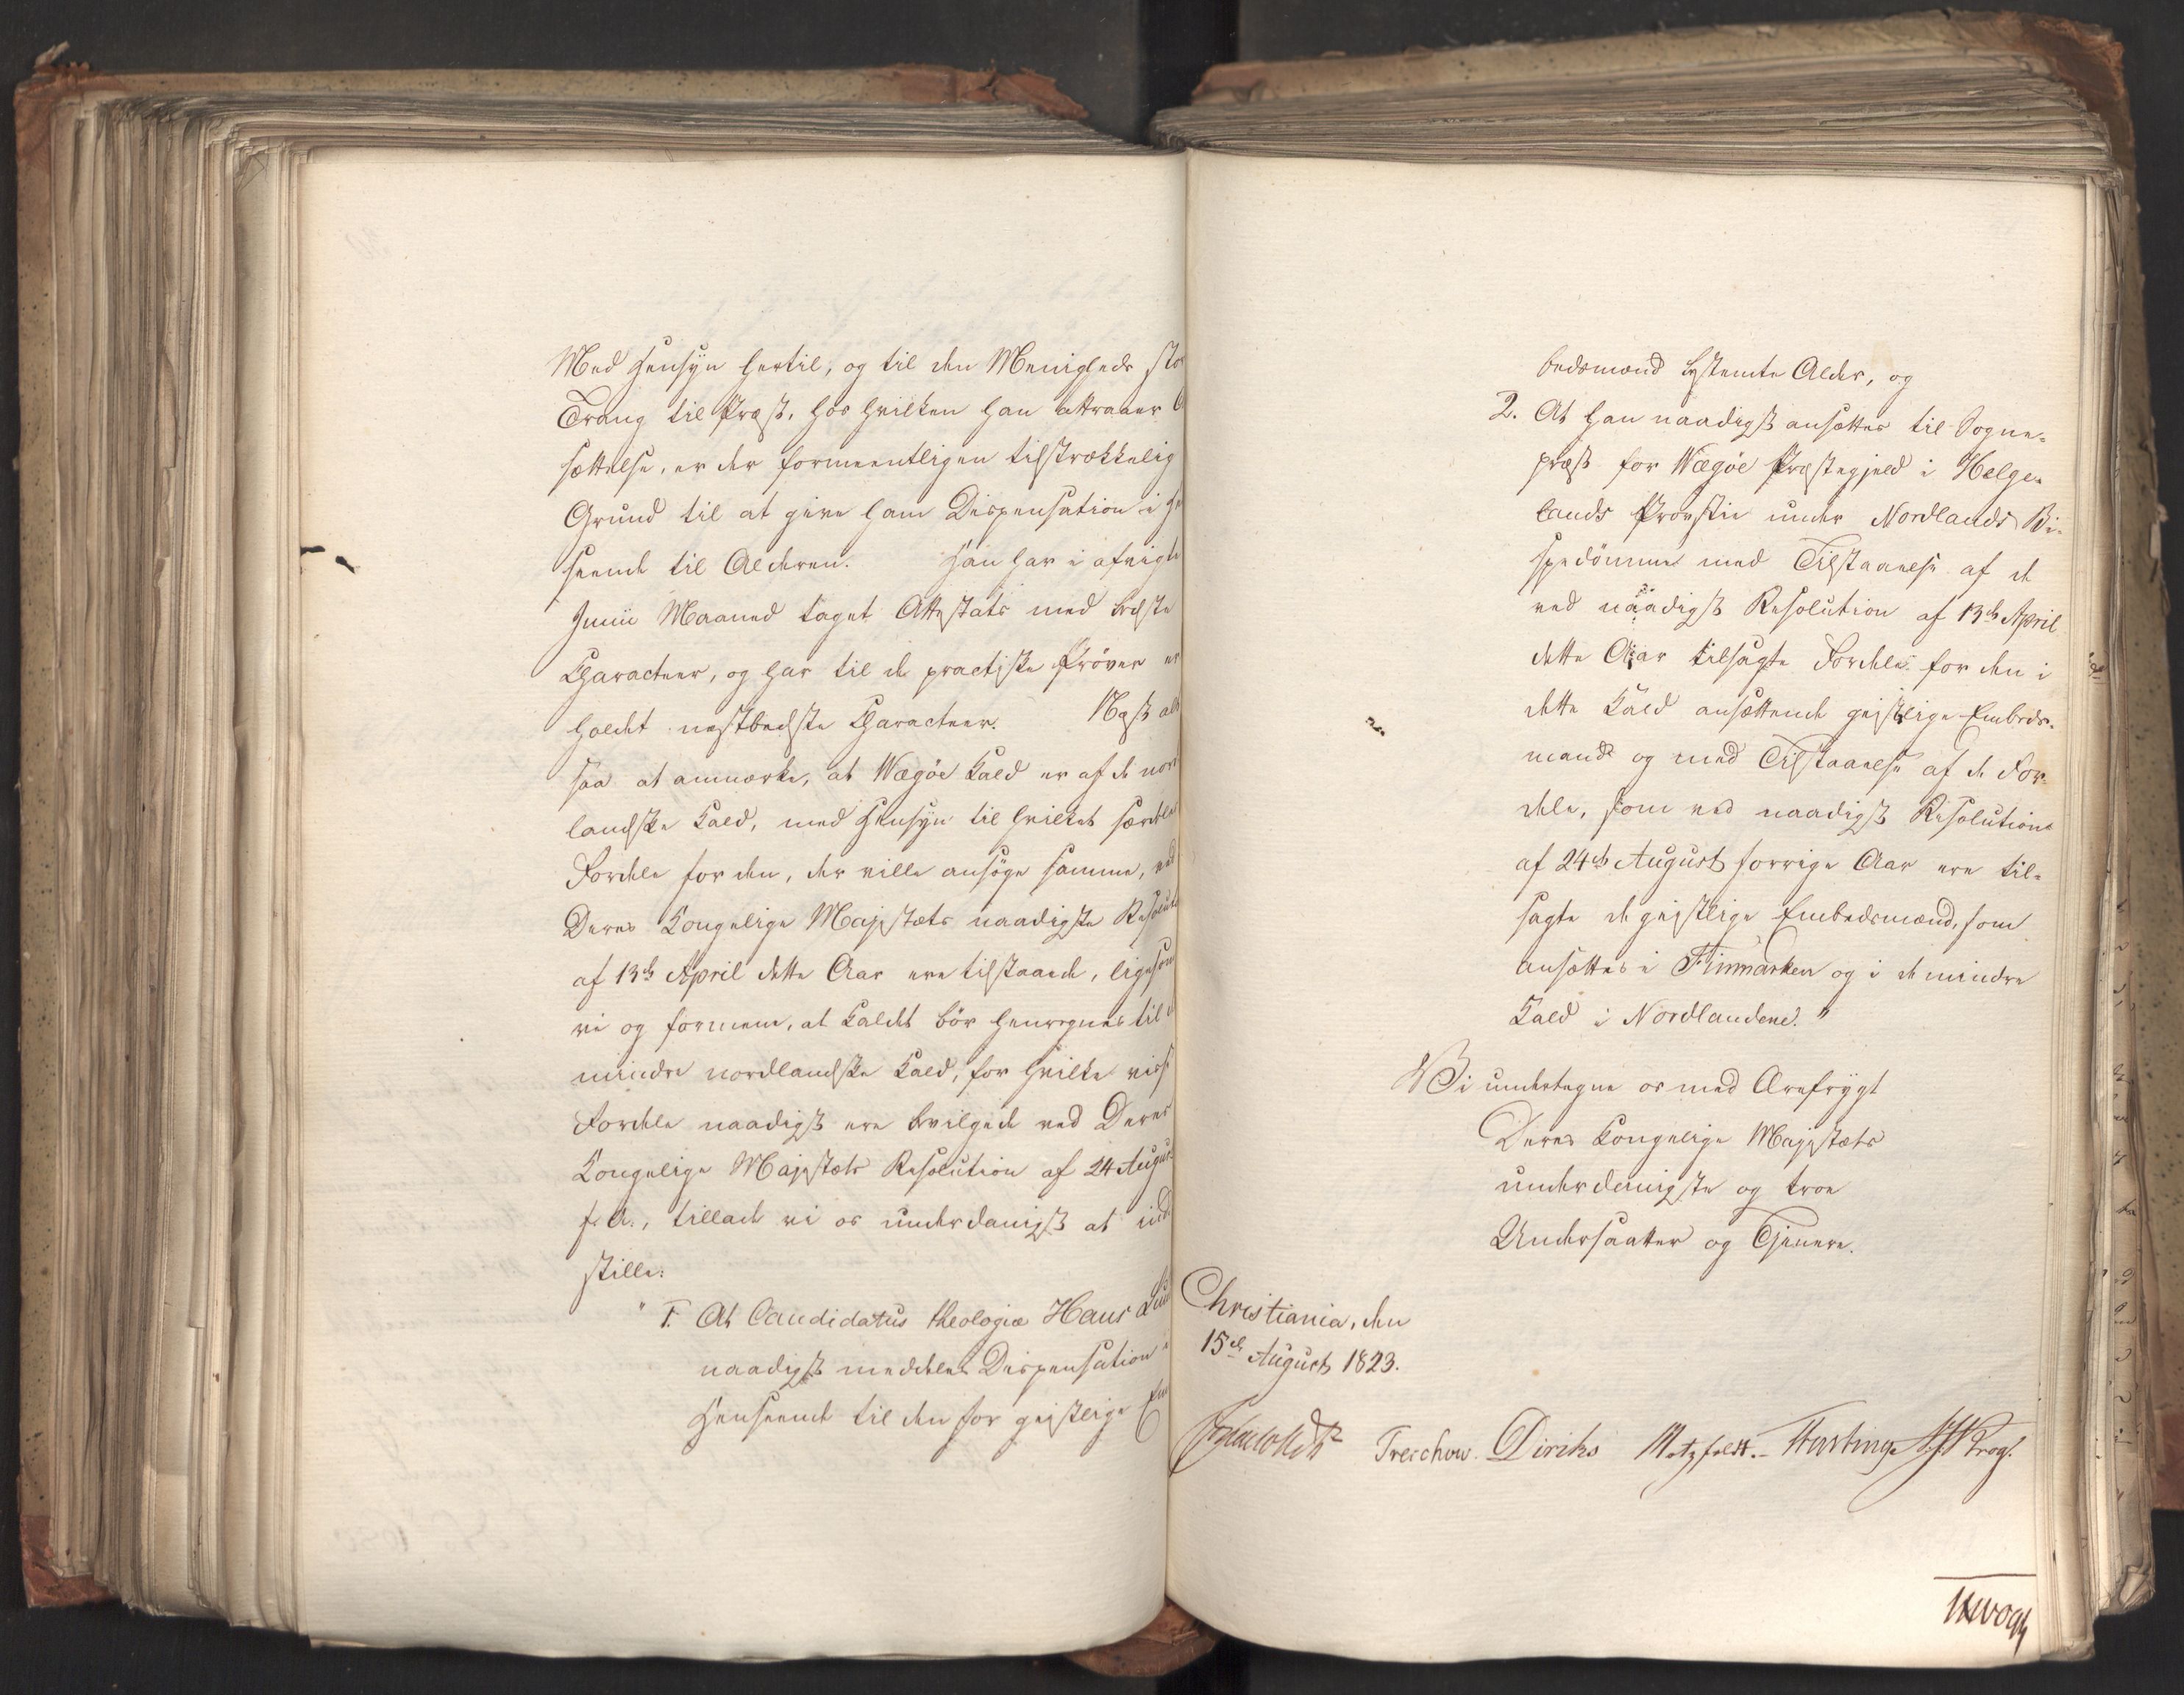 Med Hensyn hertil, og til den Menigheds sto
Trang til Præst, hos hvilken han attraaer
sættelse, er der formeentligen tilstrækkelig
Grund til at give ham Dispensation i He
seende til Alderen. Han har i afvigte
Junii Maaned taget Attestats med bedste
Characteer, og har til de practiske Prøver er
holdt næstbedste Characteer. Næst alt
saa at anmærke, at Wægøe Kald er af de nord
landske Kald, med Hensyn til hvilket særdeles
Fordele for den, der ville ansøge samme, ved
Deres Kongelige Majestæts naadigste Resoluti
af 13de April dette Aar ere tilstaaede, ligesom
vi og formene, at Kaldet bør henregnes til d
mindre nordlandske Kald, for hvilke visse
Fordele naadigst ere bevilgede ved Deres
Kongelige Majestæts Resolution af 24 August
f. A., tillade vi os underdanigst at ind
stille:
" 1. At Candidatus theologiæ Hans
naadigst meddeles Dispensation i
Henseende til den for geistlige Em
bedsmænd bestemte Alder, og
2. At han naadigst ansættes til Sogne-
præst for Wægøe Præstegjeld i Helge-
lands Provstie under Nordlands Bi-
spedömme med Tilstaaelse af de
ved naadigst Resolution af 13de April
dette Aar tilsagte Fordele for den i
dette Kald ansættende geistlige Embeds-
mand og med Tilstaaelse af de For-
dele, som ved naadigst Resolution
af 24de August forrige Aar ere til-
sagte de geistlige Embedsmænd, som
ansættes i Finmarken og i de mindre
Kald i Nordlandene."
Vi undertegne os med Ærefrygt
Deres Kongelige Majestæts
underdanigste og troe
Undersaatter og Tjenere.
Christiania, den
15de August 1823.
Treschow. Diriks Motzfeldt. Fasting JHVogt